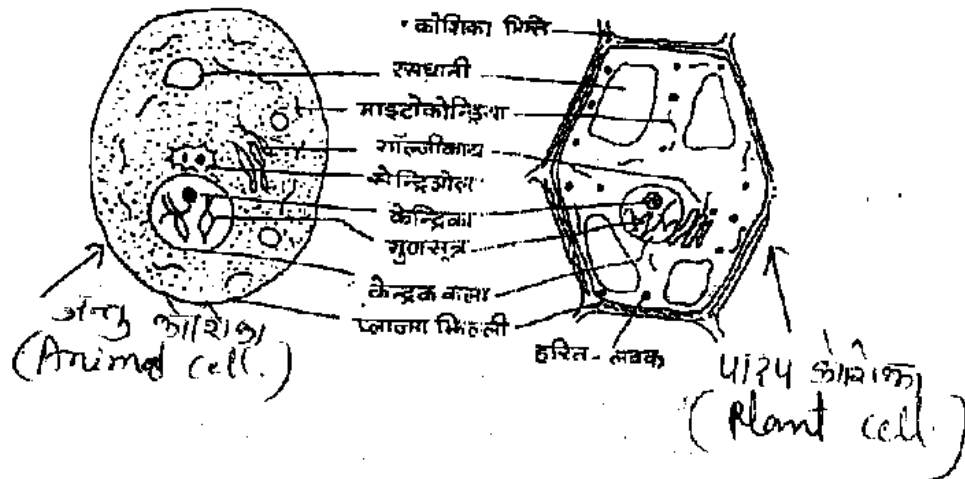 कोशिका भित्ति
रसधानी
माइटोकोन्ड्रिया
गॉल्जीकाय
सेन्ट्रिओल
केन्द्रिका
गुणसूत्र
केन्द्रक कला
प्लाज्मा झिल्ली
हरित-लवक
जन्तु कोशिका
(Animal cell.)
पादप कोशिका
(Plant cell.)